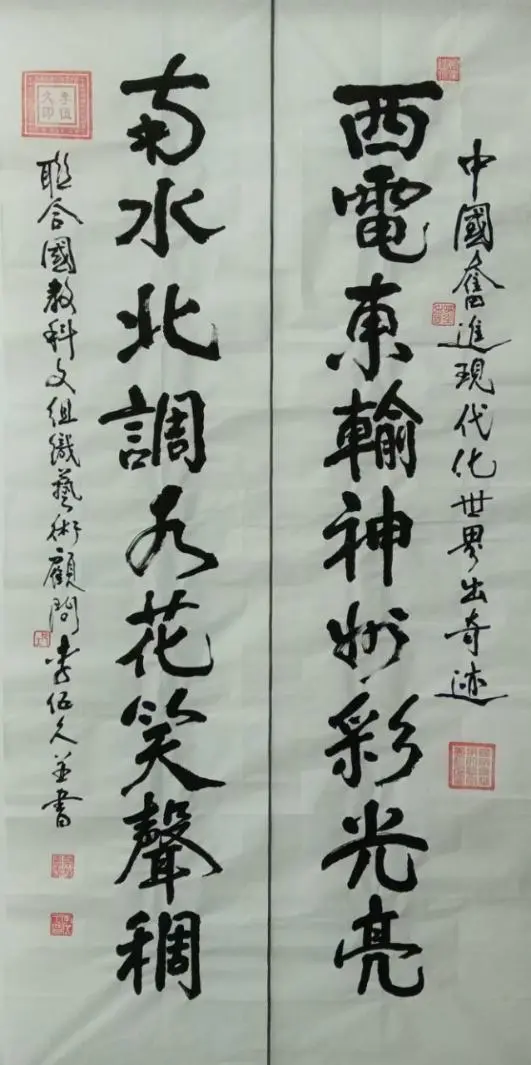 中國奮進現代化世界出奇迹
西電東輸神州彩光亮
南水北調水花笑聲稠
聯合國教科文組織藝術顧問李伍久並書